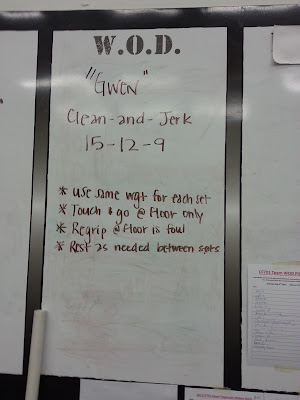 W.O.D.
"Gwen"
Clean-and-Jerk
15-12-9
* Use same wgt for each set
* Touch & go @ floor only
* Regrip @ floor is foul
* Rest as needed between sets